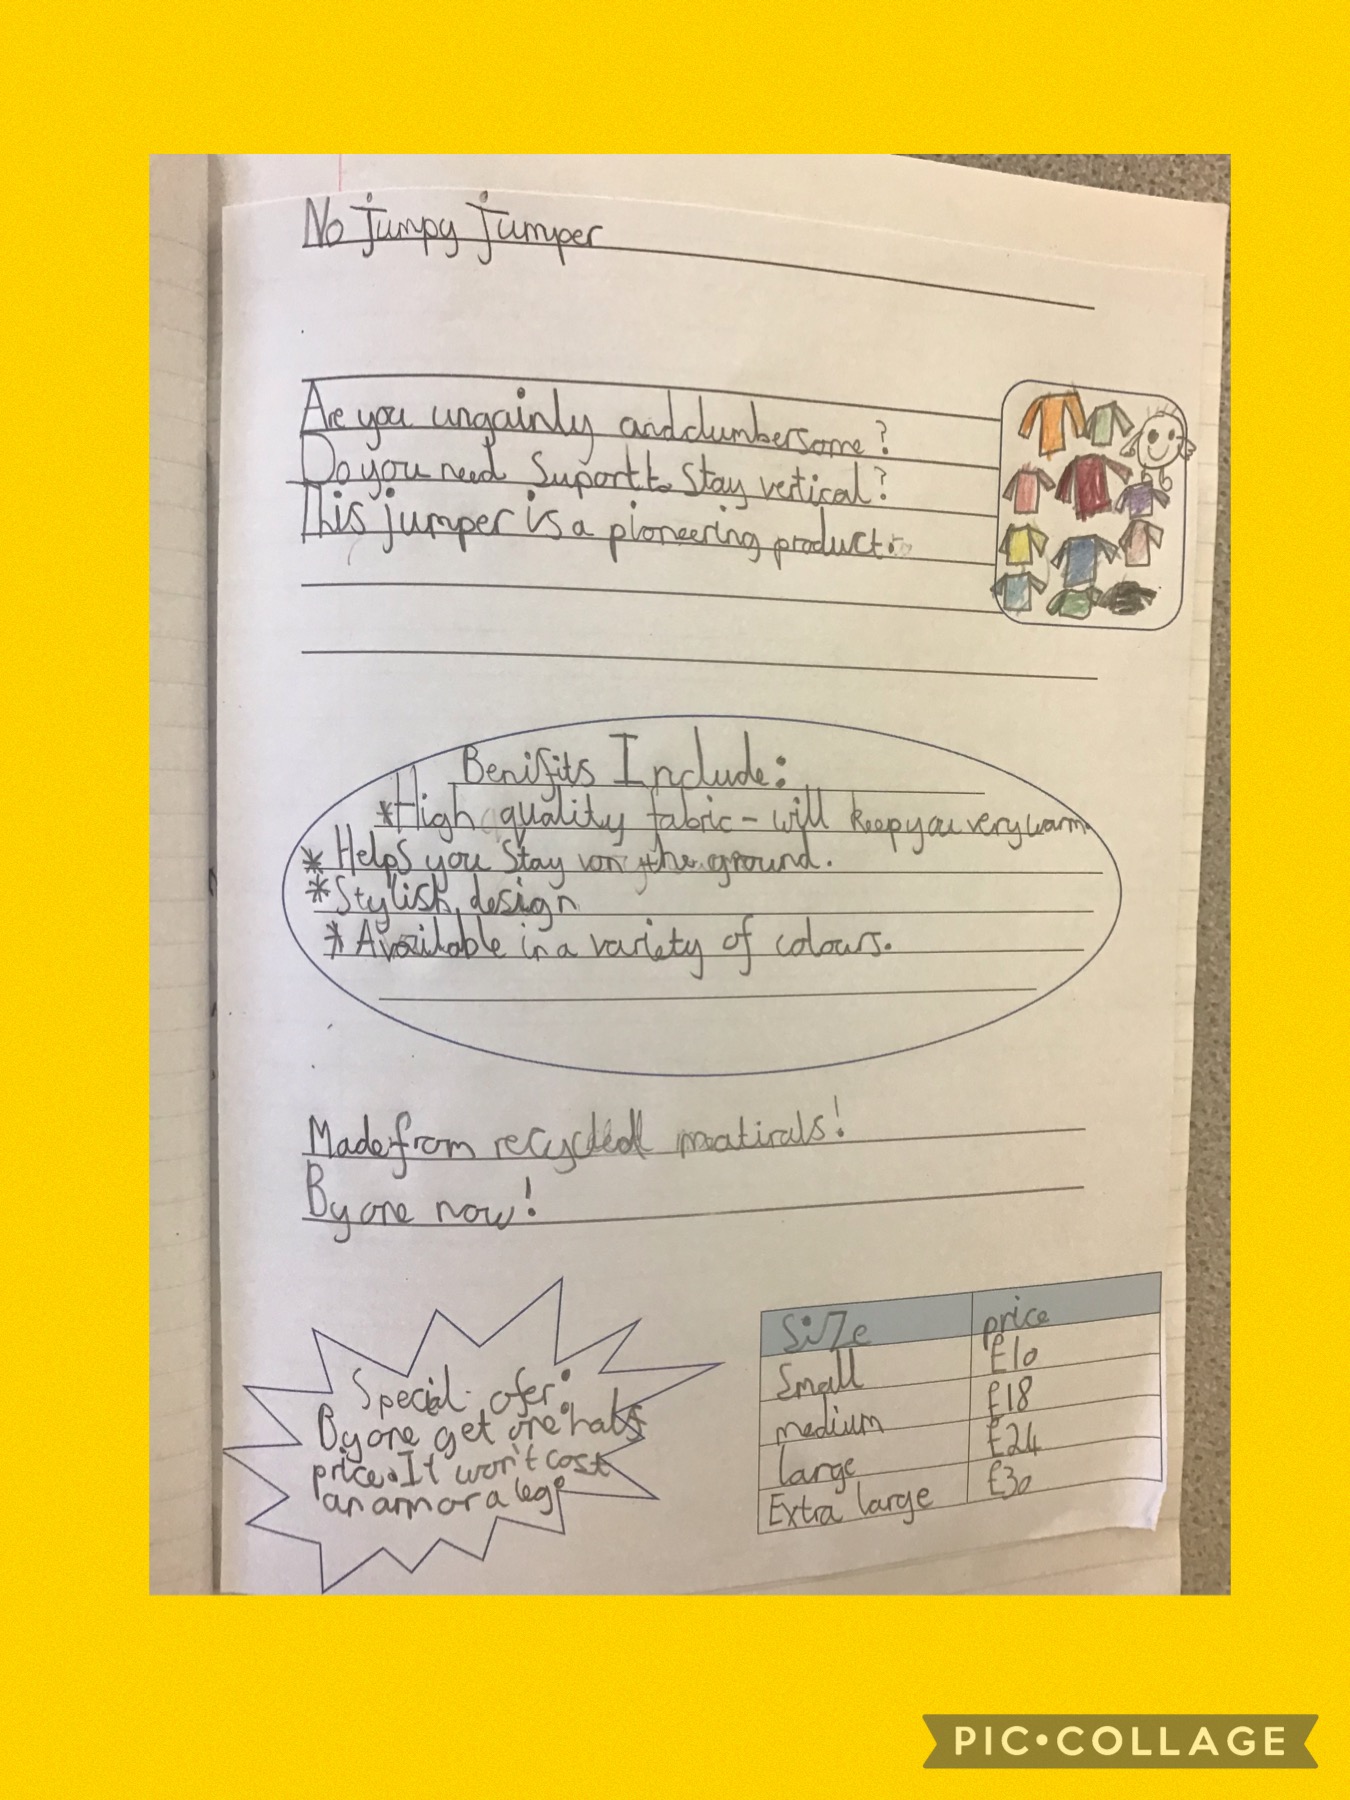 No jumpy jumper
Are you ungainly and clumbersome?
Do you need Suport to Stay vertical?
This jumper is a pioneering product.
Benifits Include:
*High quality fabric - will keep you very warm.
* Helps you Stay on the ground.
*Stylish design
* Available in a variety of colours.
Made from recycled matirals!
By one now!
Special ofer:
By one get one half
price. It won't cost
an arm or a leg!
Size price
Small £10
medium £18
large £24
Extra large £30
PIC•COLLAGE